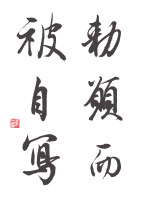 勅額而
被自写